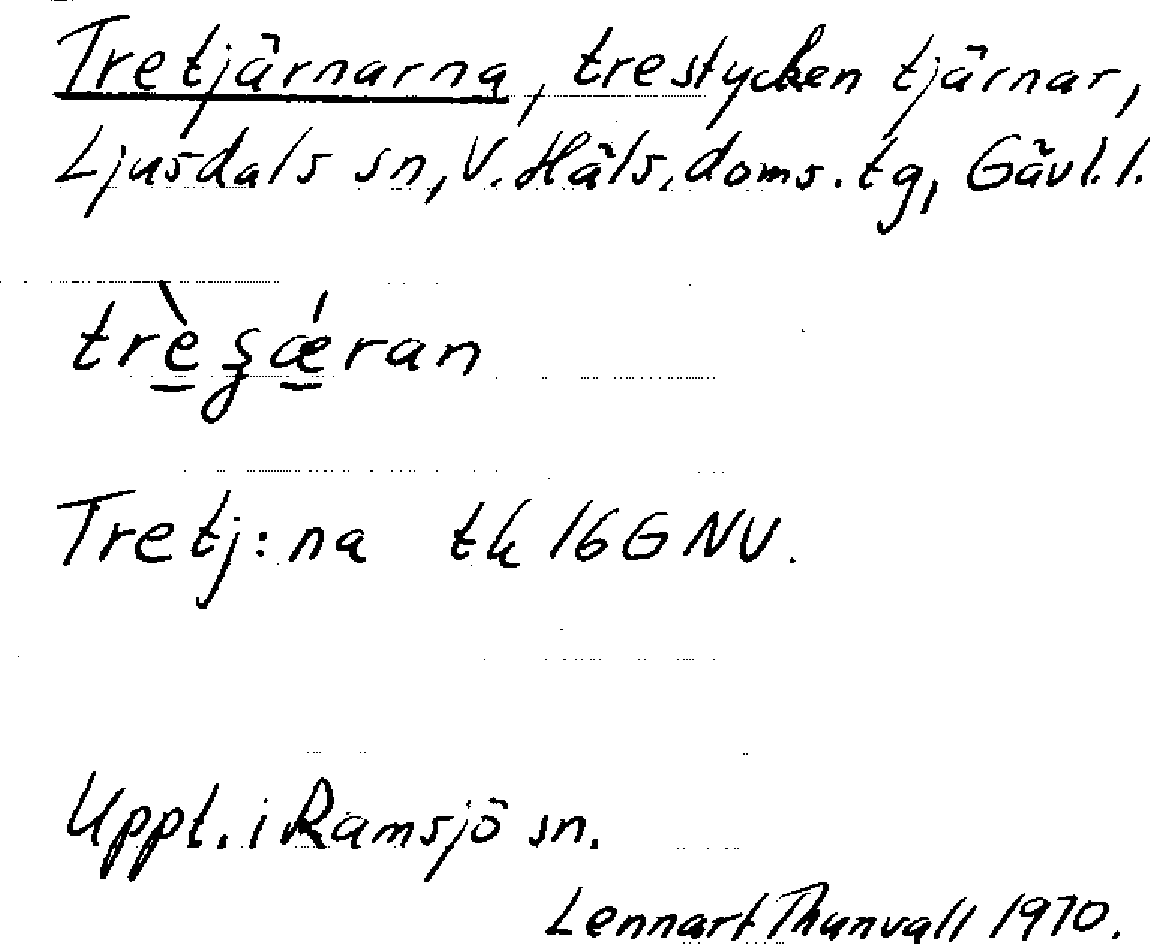 Tretjärnarna, tre stycken tjärnar,
Ljusdals sn, V. Häls. doms. tg, Gävl. l.
trè̱ʂǽ̱ran
Tretj:na tk 16G NV.
Uppt. i Ramsjö sn.
Lennart Thunvall 1970.